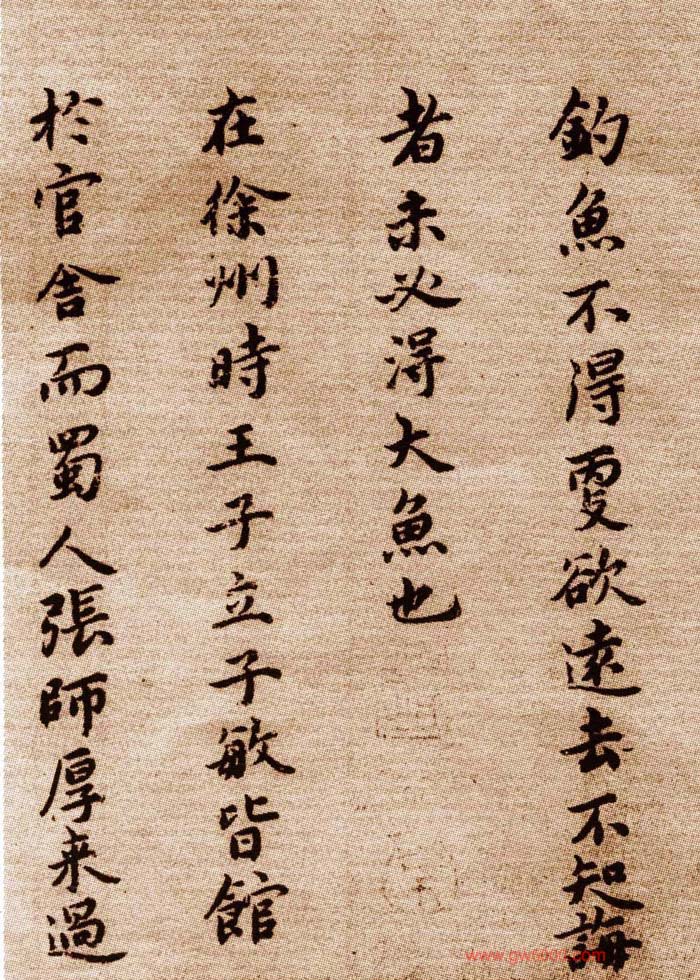 釣魚不得更欲遠去不知海
者未必得大魚也
在徐州時王子立子敏皆館
於官舍而蜀人張師厚来過